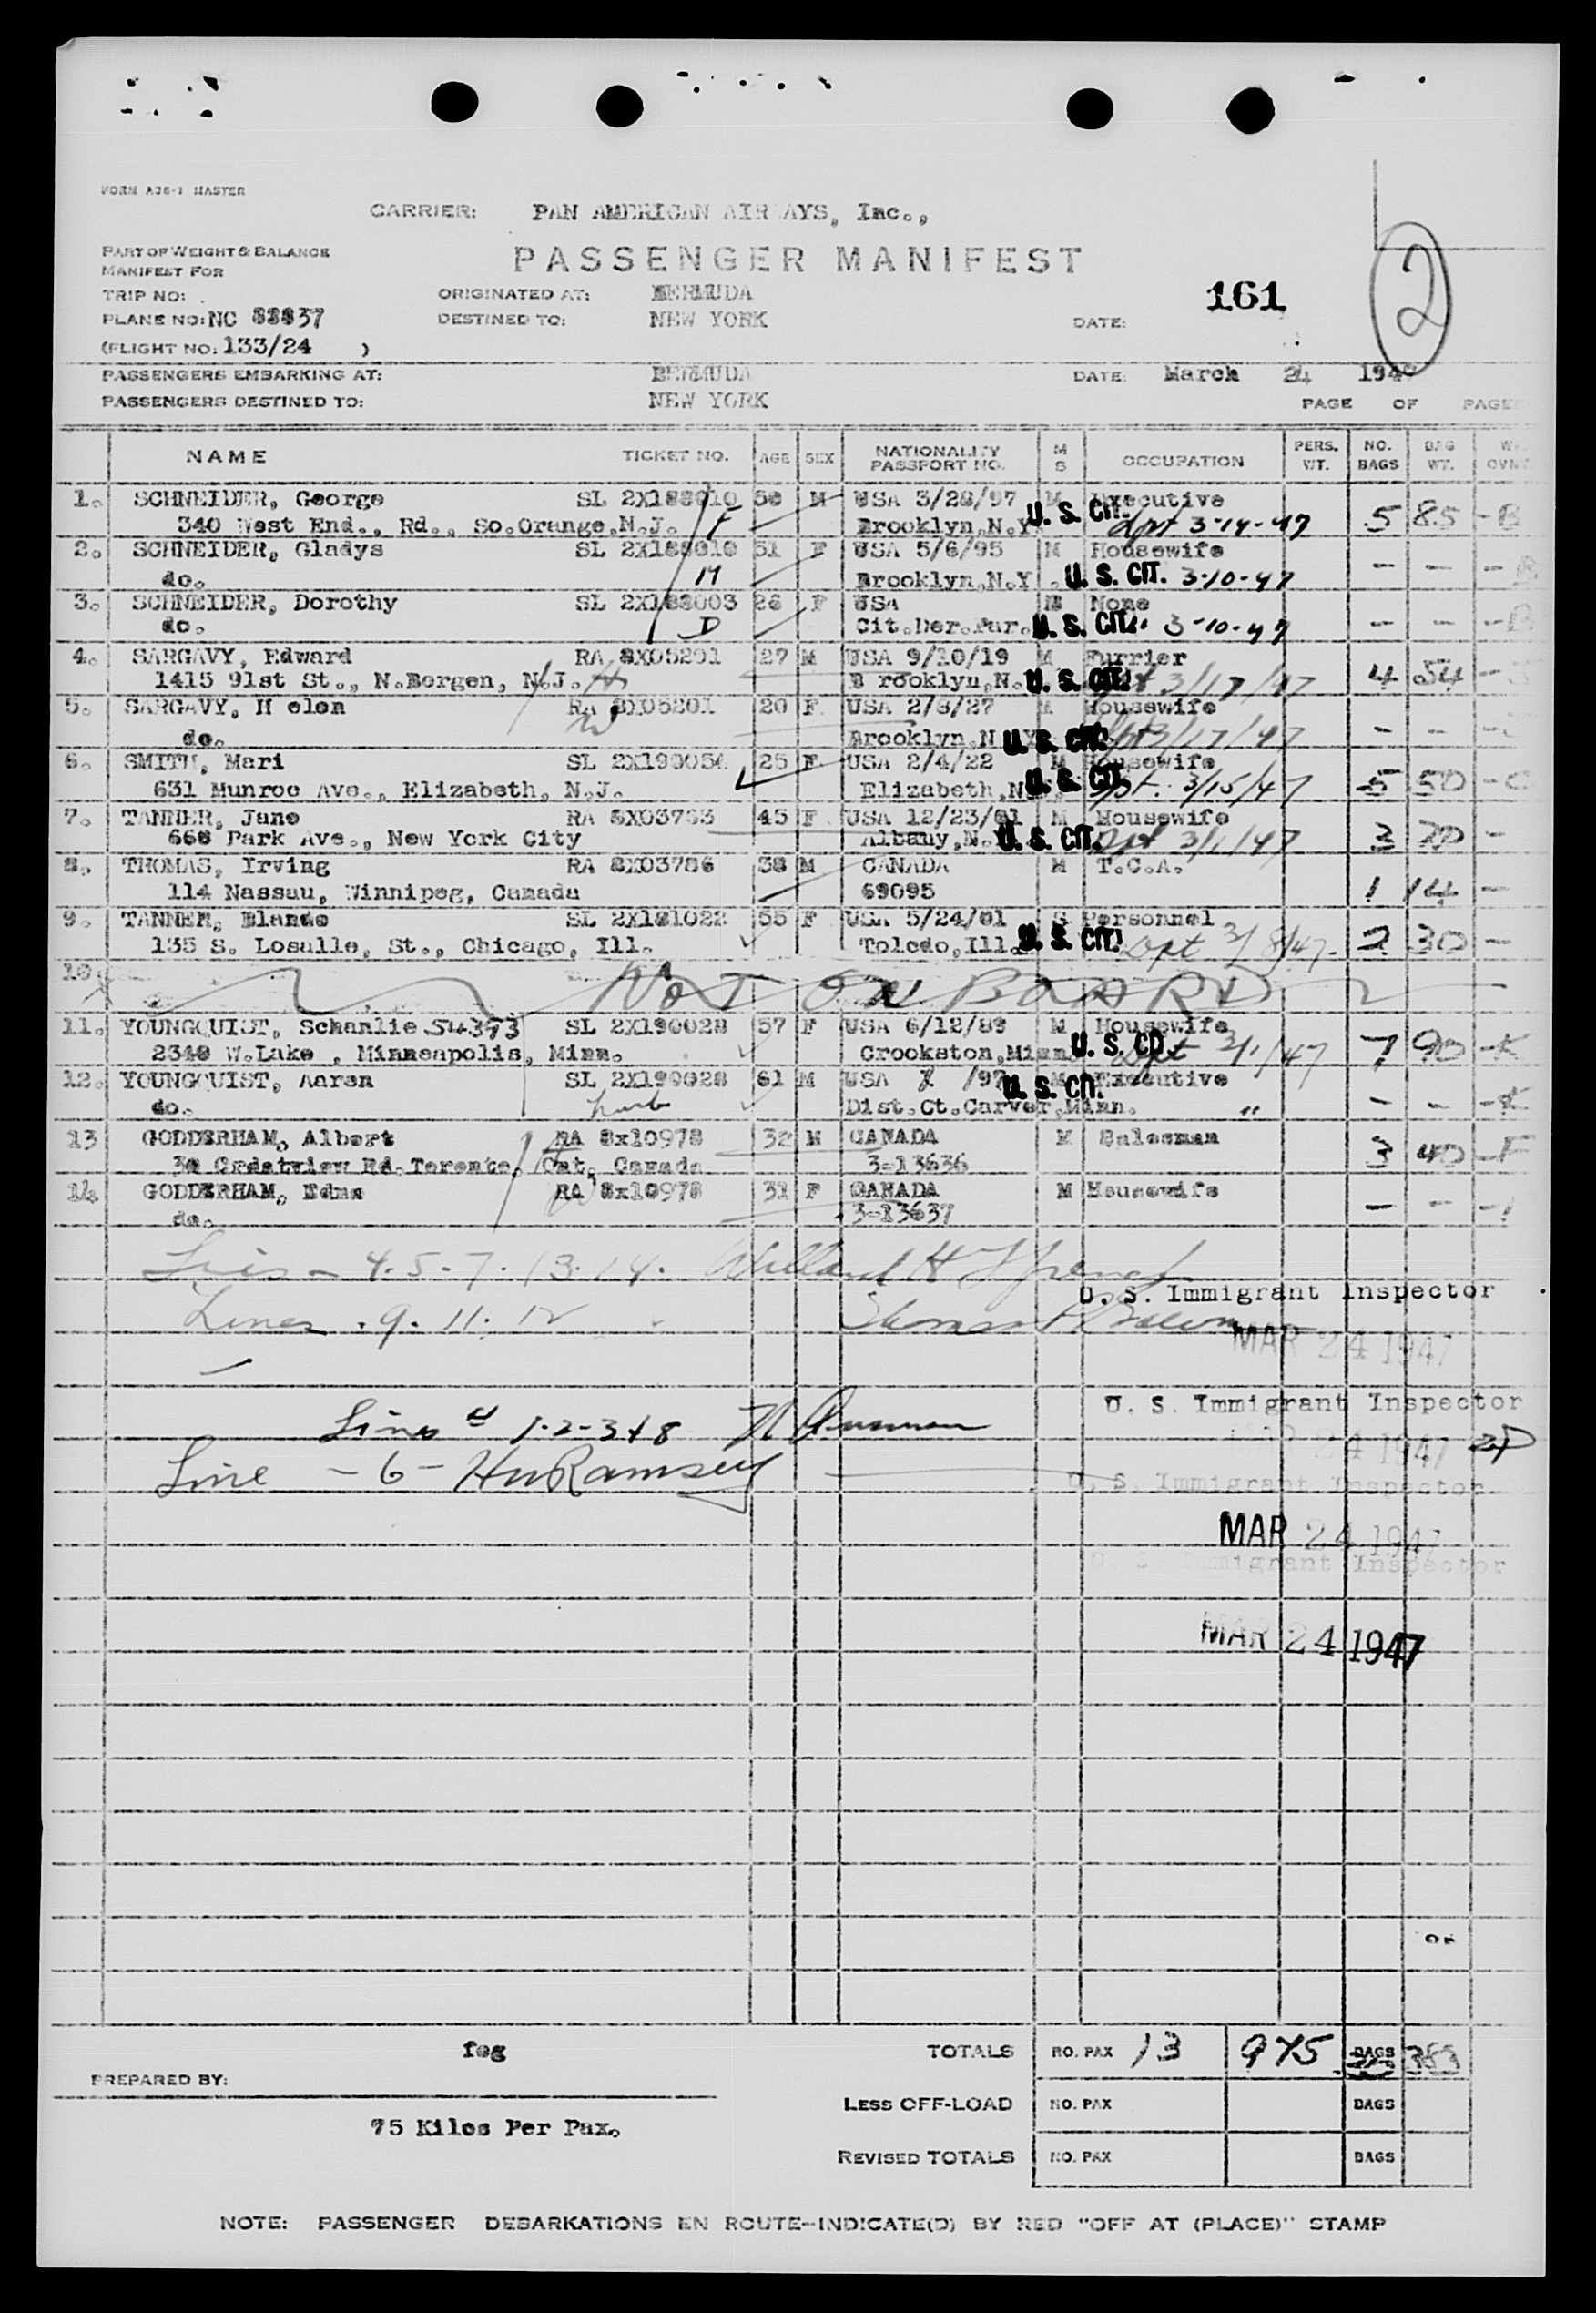 FORM A26-1 MASTER
CARRIER: PAN AMERICAN AIR AYS, Inc.,
PART OF WEIGHT & BALANCE
MANIFEST FOR
PASSENGER MANIFEST
TRIP NO: ORIGINATED AT: BERMUDA 161 2
PLANE NO: NC 88837 DESTINED TO: NEW YORK DATE:
(FLIGHT NO: 133/24 )
PASSENGERS EMBARKING AT: BERMUDA DATE: March 24 1947
PASSENGERS DESTINED TO: NEW YORK PAGE OF PAGE
NAME TICKET NO. AGE SEX NATIONALITY PASSPORT NO. M S OCCUPATION PERS. WT. NO. BAGS BAG WT.
1. SCHNEIDER, George SL 2X188010 50 M USA 3/28/97 M Executive
340 West End., Rd., So.Orange,N.J. F Brooklyn,N.Y. U. S. CIT. dpt 3-14-47 5 85 - B
2. SCHNEIDER, Gladys SL 2X188010 51 F USA 5/6/95 M Housewife
do. M Brooklyn,N.Y. U. S. CIT. 3-10-47 - - - B
3. SCHNEIDER, Dorothy SL 2X188003 26 F USA None
do. D Cit.Der.Par. U. S. CIT. 3-10-47 - - - B
4. SARGAVY, Edward RA 8X05201 27 M USA 9/10/19 M Furrier
1415 91st St., N.Bergen, N.J. H B rooklyn,N. U. S. CIT. 3/17/47 4 54 -
5. SARGAVY, H elen RA 8X05201 20 F USA 2/8/27 M Housewife
do. W Brooklyn,N Y U. S. CIT. dpt 3/17/47 - - -
6. SMITH, Mari SL 2X190054 25 F USA 2/4/22 M Housewife
631 Munroe Ave., Elizabeth, N.J. Elizabeth,N U. S. CIT. dpt. 3/15/47 5 50 - C
7. TANNER, Jane RA 8X03783 45 F USA 12/23/01 M Housewife
668 Park Ave., New York City Albany,N. U. S. CIT. dpt 3/1/47 3 30 -
8. THOMAS, Irving RA 8X03786 38 M CANADA M T.C.A.
114 Nassau, Winnipeg, Canada 69095 1 14 -
9. TANNER, Blande SL 2X181022 55 F USA 5/24/91 S Personnel
135 S. Lasalle, St., Chicago, Ill. Toledo,Ill. U. S. CIT. Dpt 3/8/47 2 30 -
10. NOT ON BOARD
11. YOUNGQUIST, Schanlie 54373 SL 2X190028 57 F USA 6/12/89 M Housewife
2340 W.Lake , Minneapolis, Minn. Crookston,Minn. U. S. CIT. dpt 3/1/47 7 90 - K
12. YOUNGQUIST, Aaron SL 2X190028 61 M USA /97 M Executive
do. husb Dist.Ct.Carver,Minn. U. S. CIT. " - - - K
13 GODDERHAM, Albert RA 8x10978 32 M CANADA M Salesman
Crestview Rd. Toronto, Ont, Canada 3-13636 3 40 - F
14 GODDERHAM, Edna RA 8x10978 31 F CANADA M Housewife
do. 3-13637 - - -
Lines - 4.5.-7.13.14.
U. S. Immigrant Inspector
Lines . 9. 11. 12
MAR 24 1947
U. S. Immigrant Inspector
Lines # 1-2-3+8
24 1947
Line - 6 - HWRamsey
U. S. Immigrant Inspector
MAR 24 1947
U. S. Immigrant Inspector
MAR 24 1947
feg TOTALS NO. PAX 13 975 BAGS 383
PREPARED BY:
LESS OFF-LOAD NO. PAX BAGS
75 Kilos Per Pax.
REVISED TOTALS NO. PAX BAGS
NOTE: PASSENGER DEBARKATIONS EN ROUTE-INDICATE(D) BY RED "OFF AT (PLACE)" STAMP